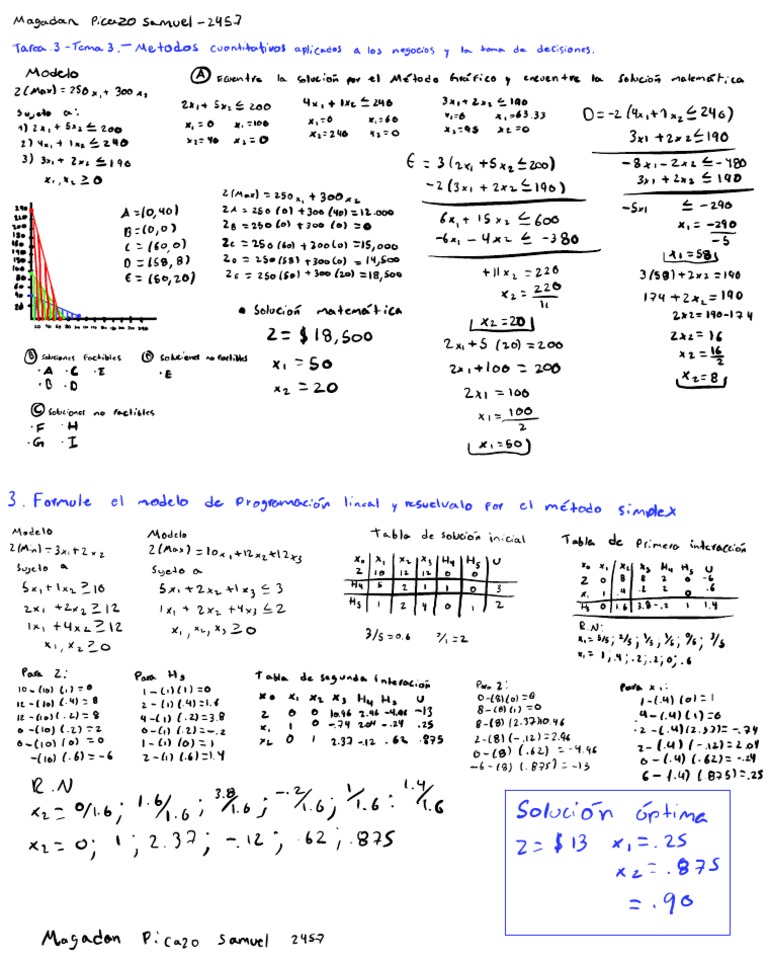 Magadan Picazo Samuel - 2457
Tarea 3 - Tema 3.- Metodos cuantitativos aplicados a los negocios y la toma de decisiones.
Modelo
Z(Max) = 250x₁ + 300x₂
Sujeto a:
1) 2x₁ + 5x₂ ≤ 200
2) 4x₁ + 1x₂ ≤ 240
3) 3x₁ + 2x₂ ≤ 190
x₁, x₂ ≥ 0
Ⓐ Encuentre la solución por el Método Gráfico y encuentre la solución matemática
2x₁ + 5x₂ ≤ 200
x₁ = 0 x₁ = 100
x₂ = 40 x₂ = 0
4x₁ + 1x₂ ≤ 240
x₁ = 0 x₁ = 60
x₂ = 240 x₂ = 0
3x₁ + 2x₂ ≤ 190
x₁ = 0 x₁ = 63.33
x₂ = 95 x₂ = 0
D = -2 (4x₁ + 1x₂ ≤ 240)
3x₁ + 2x2 ≤ 190
-8x₁ - 2x2 ≤ -480
3x₁ + 2x₂ ≤ 190
-5x₁ ≤ -290
x₁ = -290
-5
x₁ = 58
3(58) + 2x₂ = 190
174 + 2x₂ = 190
2x2 = 190 - 174
2x2 = 16
x₂ = 16
2
x₂ = 8
E = 3(2x₁ + 5x₂ ≤ 200)
-2(3x₁ + 2x2 ≤ 190)
6x₁ + 15x2 ≤ 600
-6x₁ - 4x2 ≤ -380
+11x₂ = 220
x₂ = 220
11
x₂ = 20
2x₁ + 5 (20) = 200
2x₁ + 100 = 200
2x₁ = 100
x₁ = 100
2
x₁ = 50
A = (0,40)
B = (0,0)
C = (60,0)
D = (58,8)
E = (50,20)
Z(Max) = 250x₁ + 300x₂
ZA = 250(0) + 300(40) = 12.000
ZB = 250(0) + 300(0) = 0
ZC = 250(60) + 300(0) = 15,000
ZD = 250(58) + 300(8) = 14,500
ZE = 250(50) + 300(20) = 18,500
• Solución matemática
Z = $18,500
x₁ = 50
x₂ = 20
Ⓑ Soluciones factibles
·A ·C ·E
·B ·D
soluciones no factibles
·E
Ⓒ Soluciones no factibles
·F ·H
·G ·I
3. Formule el modelo de Programación lineal y resuelvalo por el método simplex
Modelo
Z(Min) = 3x₁ + 2x₂
Sujeto a
5x₁ + 1x₂ ≥ 10
2x₁ + 2x₂ ≥ 12
1x₁ + 4x₂ ≥ 12
x₁, x₂ ≥ 0
Modelo
Z(Max) = 10x₁ + 12x₂ + 12x₃
Sujeto a
5x₁ + 2x₂ + 1x₃ ≤ 3
1x₁ + 2x₂ + 4x₃ ≤ 2
x₁, x₂, x₃ ≥ 0
Tabla de solución inicial
x₀ x₁ x₂ x₃ H₄ H₅ U
Z 10 12 12 0 0
H₄ 5 2 1 1 0 3
H₅ 1 2 4 0 1 2
3/5 = 0.6 2/1 = 2
Tabla de Primera interacción
x₀ x₁ x₂ x₃ H₄ H₅ U
Z 0 8 8 2 0 -6
x₁ 1 .4 .2 .2 0 .6
H₅ 0 1.6 3.8 -.2 1 1.4
R.N:
x₁ = 5/5; 2/5; 1/5; 1/5; 0/5; 3/5
x₁ = 1; .4; .2; .2; 0; .6
Para Z:
10-(10)(1) = 0
12-(10)(.4) = 8
12-(10)(.2) = 8
0-(10)(.2) = 2
0-(10)(0) = 0
-(10)(.6) = -6
Para H₅
1-(1)(1) = 0
2-(1)(.4) = 1.6
4-(1)(.2) = 3.8
0-(1)(.2) = -.2
1-(1)(0) = 1
2-(1)(.6) = 1.4
Tabla de segunda interacción
x₀ x₁ x₂ x₃ H₄ H₅ U
Z 0 0 10.96 2.96 -4.96 -13
x₁ 1 0 -.74 2.04 -.24 .25
x₂ 0 1 2.37 -.12 .62 .875
Para Z:
0-(8)(0) = 0
8-(8)(1) = 0
8-(8)(2.37)10.96
2-(8)(-.12) = 2.96
0-(8)(.62) = -4.96
-6-(8)(.875) = -13
Para x₁:
1-(.4)(0) = 1
.4-(.4)(1) = 0
.2-(.4)(2.37) = -.74
2-(.4)(-.12) = 2.04
0-(.4)(.62) = -.24
6-(.4)(.875) = .25
R.N
x₂ = 0/1.6; 1.6/1.6; 3.8/1.6; -.2/1.6; 1/1.6; 1.4/1.6
x₂ = 0; 1; 2.37; -.12; .62; .875
Solución óptima
Z = $13 x₁ = .25
x₂ = .875
= .90
Magadan Picazo Samuel 2457